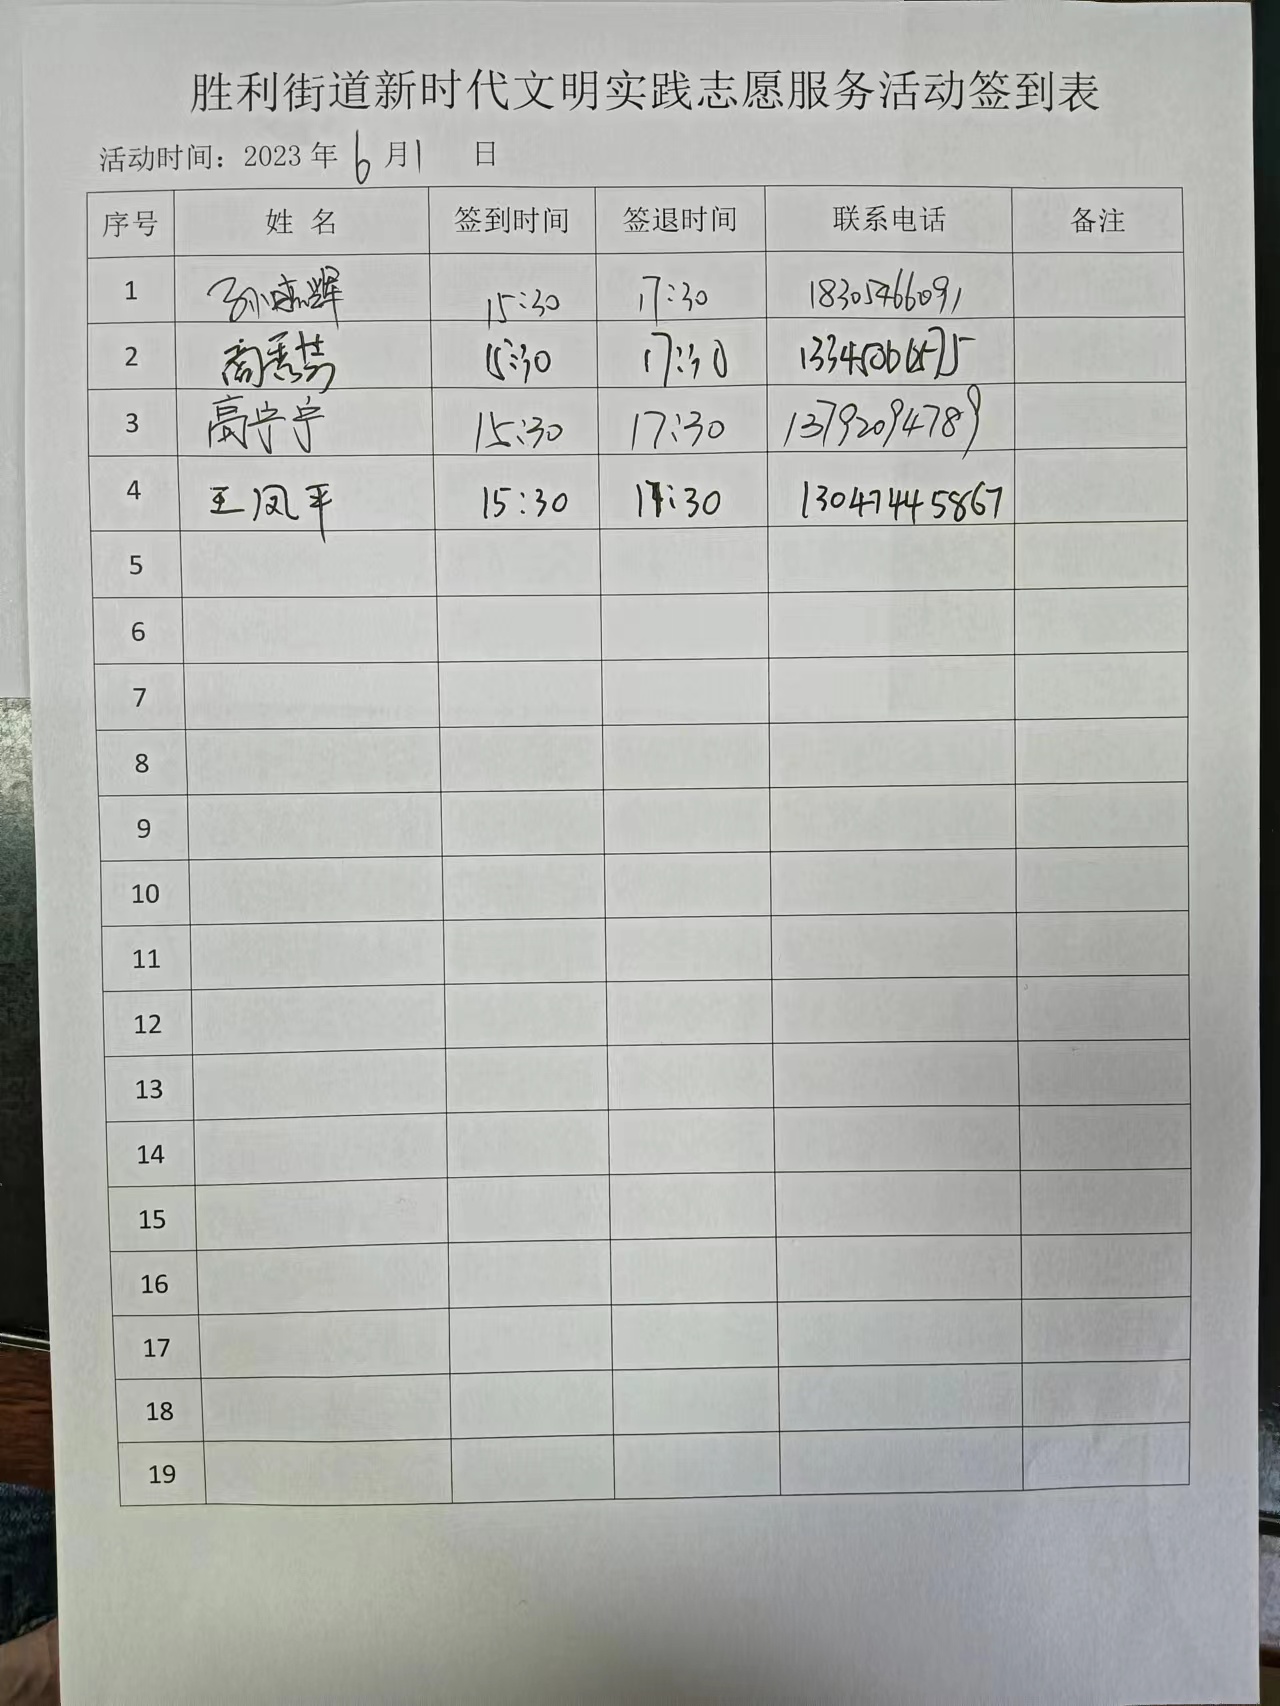 胜利街道新时代文明实践志愿服务活动签到表
活动时间：2023年 6 月 1 日
序号 姓 名 签到时间 签退时间 联系电话 备注
1 15:30 17:30 18305466091
2 15:30 17:30
3 高宁宁 15:30 17:30 13792094789
4 王凤平 15:30 17:30 13047445867
5
6
7
8
9
10
11
12
13
14
15
16
17
18
19